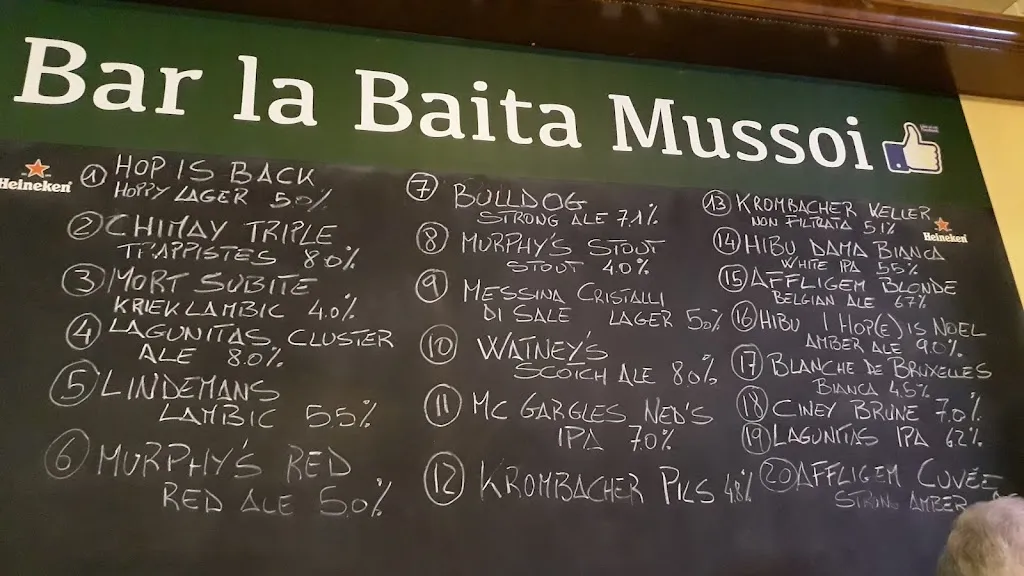 Bar la Baita Mussoi
Heineken
1 HOP IS BACK
HOPPY LAGER 5.0%
2 CHIMAY TRIPLE
TRAPPISTES 8.0%
3 MORT SUBITE
KRIEK LAMBIC 4.0%
4 LAGUNITAS, CLUSTER
ALE 8.0%
5 LINDEMANS
LAMBIC 5.5%
6 MURPHY'S RED
RED ALE 5.0%
7 BULLDOG
STRONG ALE 7.1%
8 MURPHY'S STOUT
STOUT 4.0%
9 MESSINA CRISTALLI
DI SALE LAGER 5.0%
10 WATNEY'S
SCOTCH ALE 8.0%
11 MC GARGLES NED'S
IPA 7.0%
12 KROMBACHER PILS 4.8%
13 KROMBACHER KELLER
NON FILTRATA 5.1%
Heineken
14 HIBU DAMA BIANCA
WHITE IPA 5.5%
15 AFFLIGEM BLONDE
BELGIAN ALE 6.7%
16 HIBU 1 HOP(E) IS NOEL
AMBER ALE 9.0%
17 BLANCHE DE BRUXELLES
BIANCA 4.5%
18 CINEY BRUNE 7.0%
19 LAGUNITAS IPA 6.2%
20 AFFLIGEM CUVÉE
STRONG AMBER